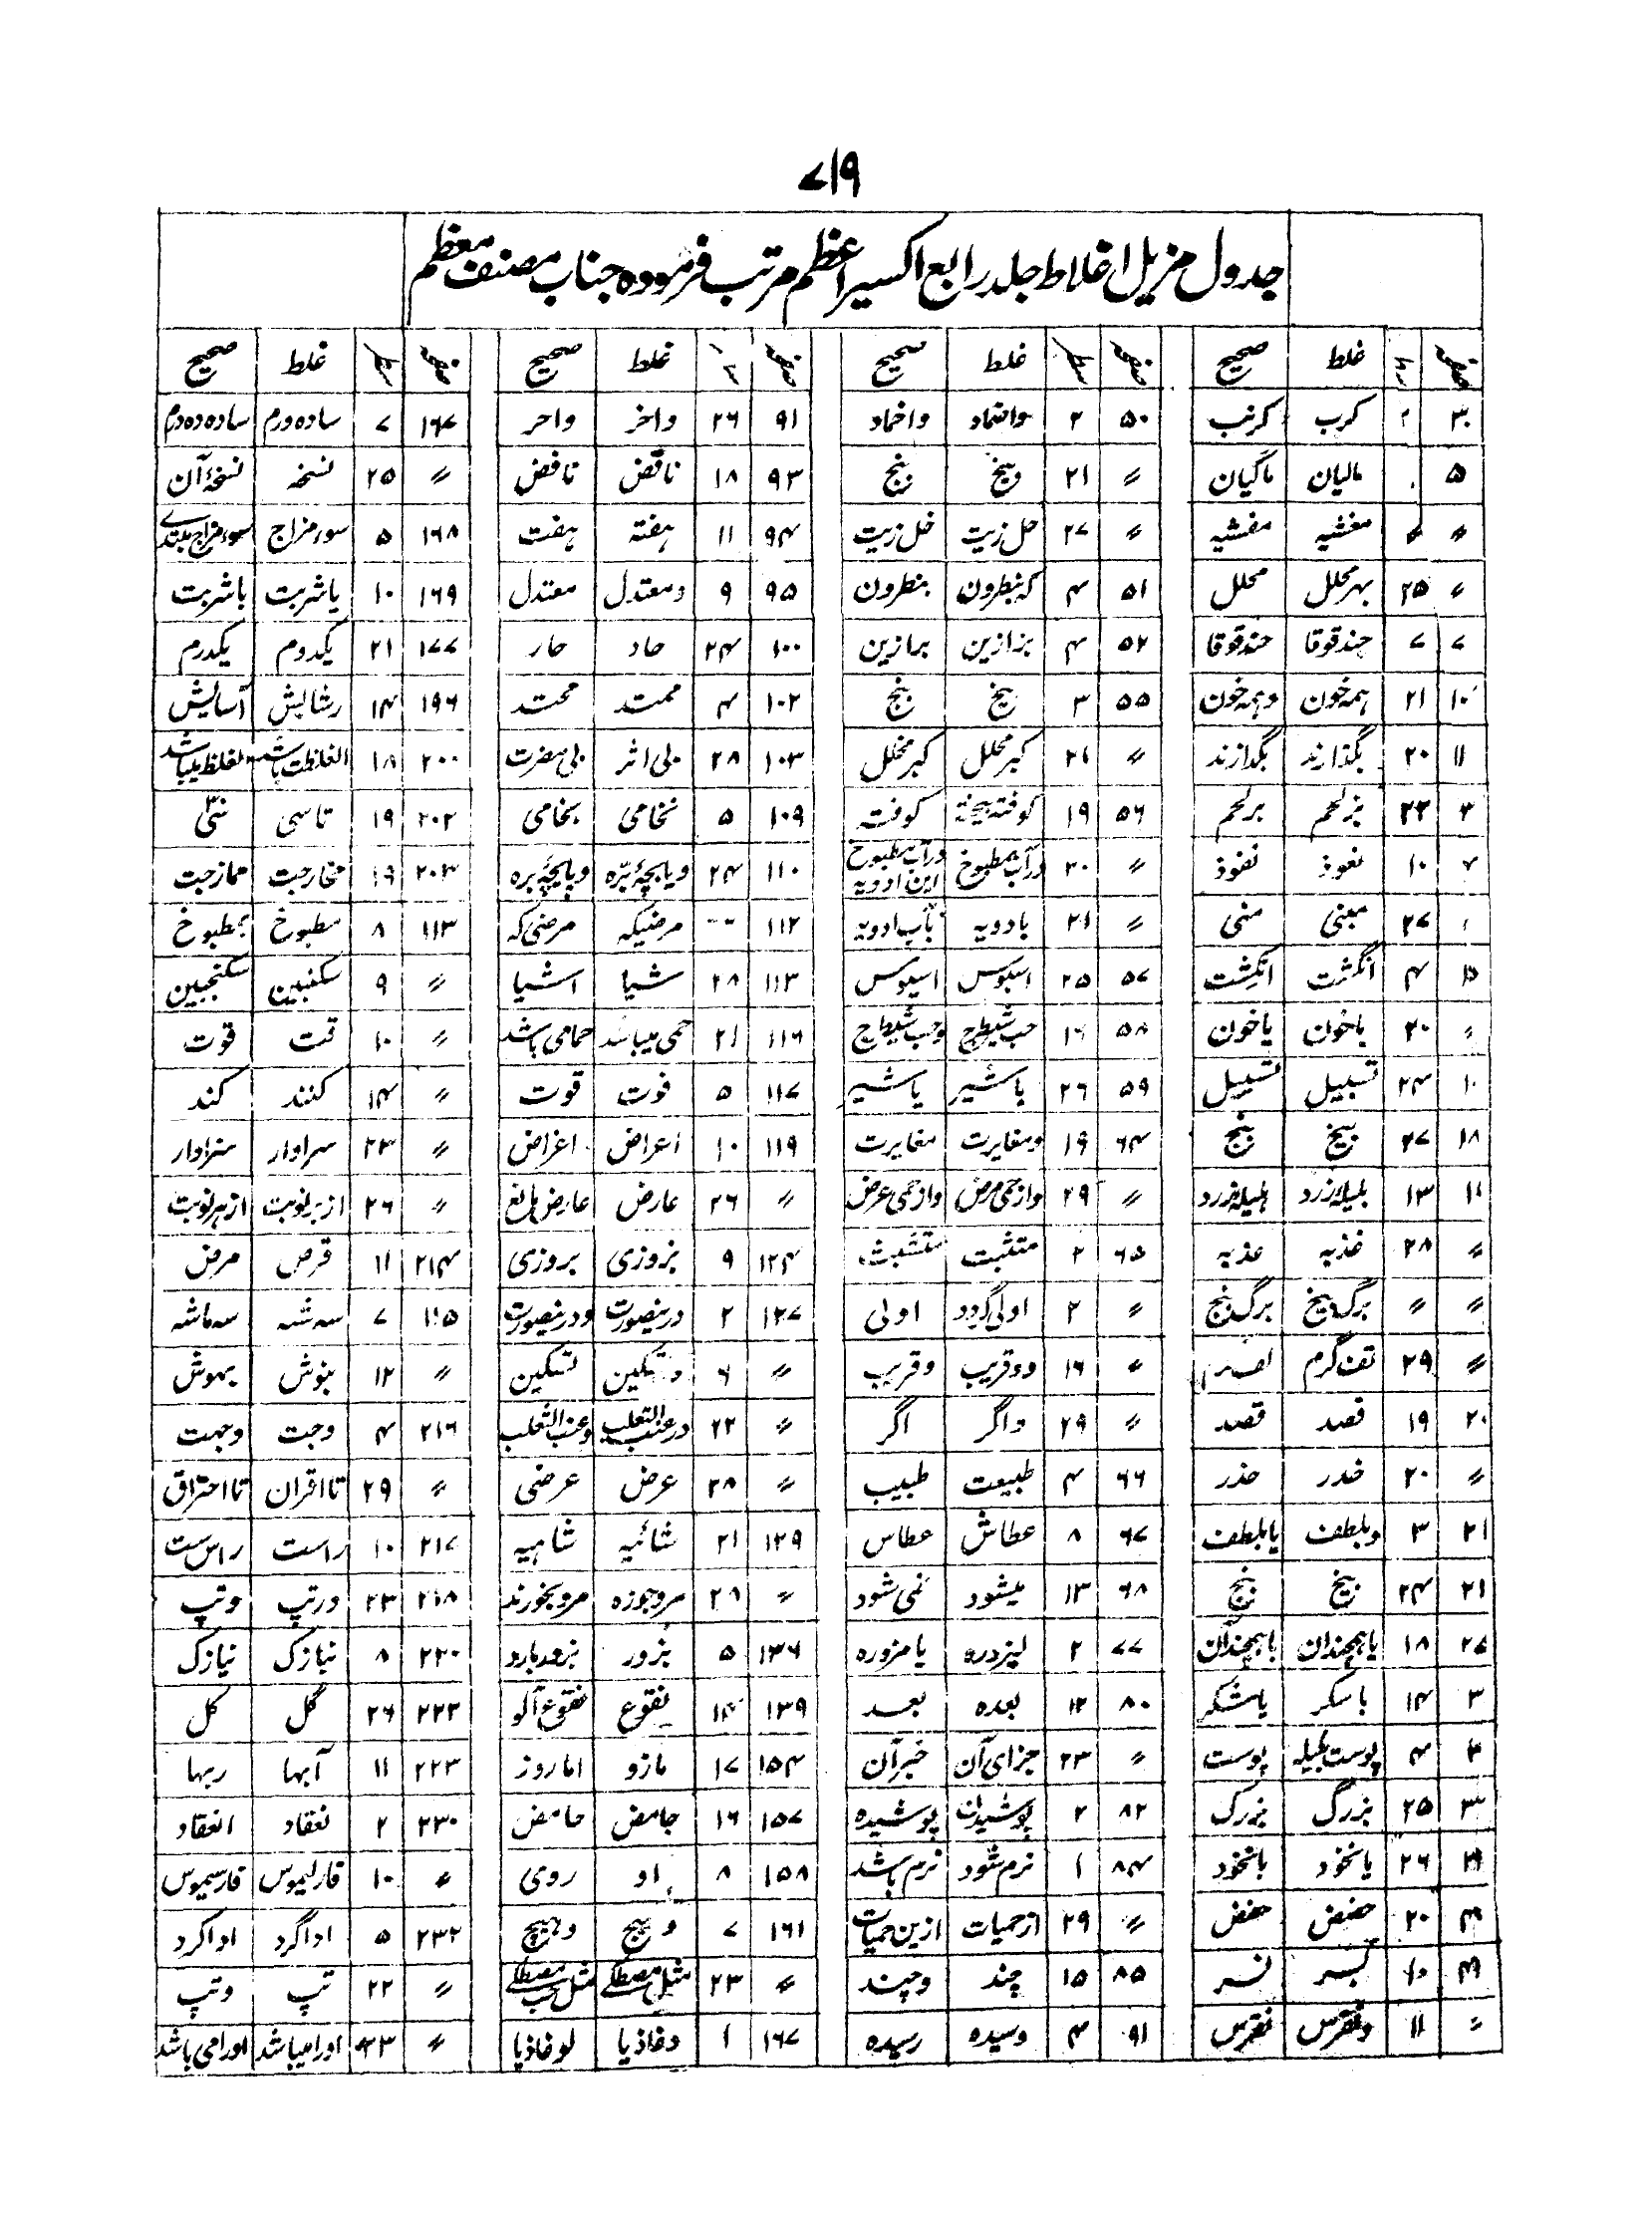 ۷۱۹
جدول مزیل اغلاط جلد رابع اکسیر اعظم مرتب فرموده جناب مصنف معظم
صفحہ سطر غلط صحیح صفحہ سطر غلط صحیح صفحہ غلط صحیح صفحہ سطر غلط صحیح
کرب کرنب ۵۰ ۲ واضماد واخماد ۹۱ ۲۶ واخر واحر ۱۶۷ ۷ ساده درم ساده ده درم
۵ مالیان ماکیان 〃 ۲۱ وبیخ وبنج ۹۳ ۱۸ ناقض نافض 〃 ۲۵ نسخہ نسخۂ آن
〃 〃 مغشیہ مفشیہ 〃 ۲۷ حل زیت خل زیت ۹۴ ۱۱ ہفتہ ہفت ۱۶۸ ۵ سوء مزاج سوء مزاج
〃 ۲۵ بہر محلل محلل ۵۱ ۴ کہ بنطرون بنطرون ۹۵ ۹ ومعتدل معتدل ۱۶۹ ۱۰ یا شربت با شربت
۷ ۷ چندقوقا حندقوقا ۵۲ ۴ بزازین برازین ۱۰۰ ۲۴ حاد حار ۱۷۷ ۲۱ یکدوم یکدرم
۱۰ ۲۱ ہمہ خون وہمہ خون ۵۵ ۳ بیخ بنج ۱۰۲ ۴ ممتد محتد ۱۹۶ ۱۴ رشایش آسایش
۱۱ ۲۰ بگذارند بگدازند 〃 ۲۱ کبر محلل کبر مخلل ۱۰۳ ۲۸ بی اثر بی مضرت ۲۰۰ ۱۸
۲۳ بزلحم برلحم ۵۶ ۱۹ کوفتہ بیختہ کوفتہ ۱۰۹ ۵ نخامی بخامی ۲۰۲ ۱۹ تاسی
۱۰ نعوذ نفوذ 〃 ۳۰ درآب مطبوخ درآب مطبوخ این ادویہ ۱۱۰ ۲۴ ویابچۂ برّه وپایچۂ بره ۲۰۳ ۱۹ مخارجت ممازجت
۲۷ مبنی منی 〃 ۲۱ بادویہ بآب ادویہ ۱۱۲ مرضیکہ مرضی کہ ۱۱۳ ۸ مطبوخ بمطبوخ
۱۵ ۴ انگشت انگشت ۵۷ ۲۵ اسبوس اسیوس ۱۱۳ ۲۸ شیا اشیا 〃 ۹ سکنبین سکنجبین
〃 ۲۰ باخون یاخون ۵۸ ۱۶ حب شیطرج وحب شیطرج ۱۱۶ ۲۱ حمی میباشد حمامی باشد 〃 ۱۰ قت قوت
۲۴ تسبیل تسبیل ۵۹ ۲۶ باشیر یاشیر ۱۱۷ ۵ فوت قوت 〃 ۱۴ کنند کند
۱۸ ۲۷ بیخ بنج ۶۴ ۱۹ ومغایرت مغایرت ۱۱۹ ۱۰ اعراض اغراض 〃 ۲۳ سراوار سزاوار
۱۳ بلیلہ زرد ہلیلہ زرد 〃 ۲۹ وازحمی مرض وازحمی عرض 〃 ۲۶ عارض عارض بالغ 〃 ۲۶ ازبرنوبت ازہرنوبت
〃 ۲۸ غذبہ عذبہ ۶۵ ۲ متثبت متشبث ۱۲۴ ۹ بزوزی بروزی ۲۱۴ ۱۱ قرص مرض
〃 〃 برگ بیخ برگ بنج 〃 ۲ اولی گردد اولی ۱۲۷ ۲ درینصورت ودرینصورت ۱۱۵ ۷ سہ شہ سہ ماشہ
〃 ۲۹ تف گرم 〃 ۱۶ ودقریب وقریب 〃 ۶ تسکین 〃 ۱۲ بنوش بہوش
۲۰ ۱۹ فصد قصد 〃 ۲۹ واگر اگر 〃 ۲۲ درعنب الثعلب وعنب الثعلب ۲۱۶ ۴ وجت وجہت
〃 ۲۰ خدر حذر ۶۶ ۴ طبیعت طبیب 〃 ۲۸ عرض عرضی 〃 ۲۹ تااقران تااحتراق
۲۱ ۳ وبلطف یابلطف ۶۷ ۸ عطاش عطاس ۱۲۹ ۲۱ شائیہ شاہیہ ۲۱۷ ۱۰ راست راس ست
۲۱ ۲۴ بیخ بنج ۶۸ ۱۳ میشود نمی شود 〃 ۲۸ مروجوزہ مروبخورند ۲۱۸ ۲۳ ورتپ وتپ
۲۷ ۱۸ یاہمچندان باہمچندان ۷۷ ۲ لپزدرہ یامزورہ ۱۳۶ ۵ بزور ۲۲۰ ۸ نبازک نیازک
۳ ۱۴ باسکر یاشکر ۸۰ ۱۲ بعدہ بعد ۱۳۹ ۱۴ نقوع نقوع آلو ۲۲۲ ۲۶ گل کل
۴ پوست ہلیلہ پوست 〃 ۲۳ جزای آن خبرآن ۱۵۴ ۱۷ مازو اماروز ۲۲۳ ۱۱ آبہا ربہا
۲۵ بزرگ بزرک ۸۲ ۲ پوشیدان پوشیدہ ۱۵۷ ۱۶ جامض حامض ۲۳۰ ۲ نعقاد انعقاد
۲۶ یانخود بانخود ۸۴ ۱ نرم شود نرم باشد ۱۵۸ ۸ او روی 〃 ۱۰ فارلیموس فارسیموس
۲۰ حضض 〃 ۲۹ ازحمیات ازین حمیات ۱۶۱ ۷ وبیج وہیچ ۲۳۲ ۵ اداگرد اداکرد
نسر ۸۵ ۱۵ چند وچند 〃 ۲۳ مثل مصطکے مثل حب مصطکے 〃 ۲۲ تپ وتپ
〃 ۱۱ ونقرس نقرس ۹۱ ۴ وسیدہ رسیدہ ۱۶۷ ۱ دغاذیا لوغاذیا 〃 ۲۳ اورامیباشد اورامی باشد